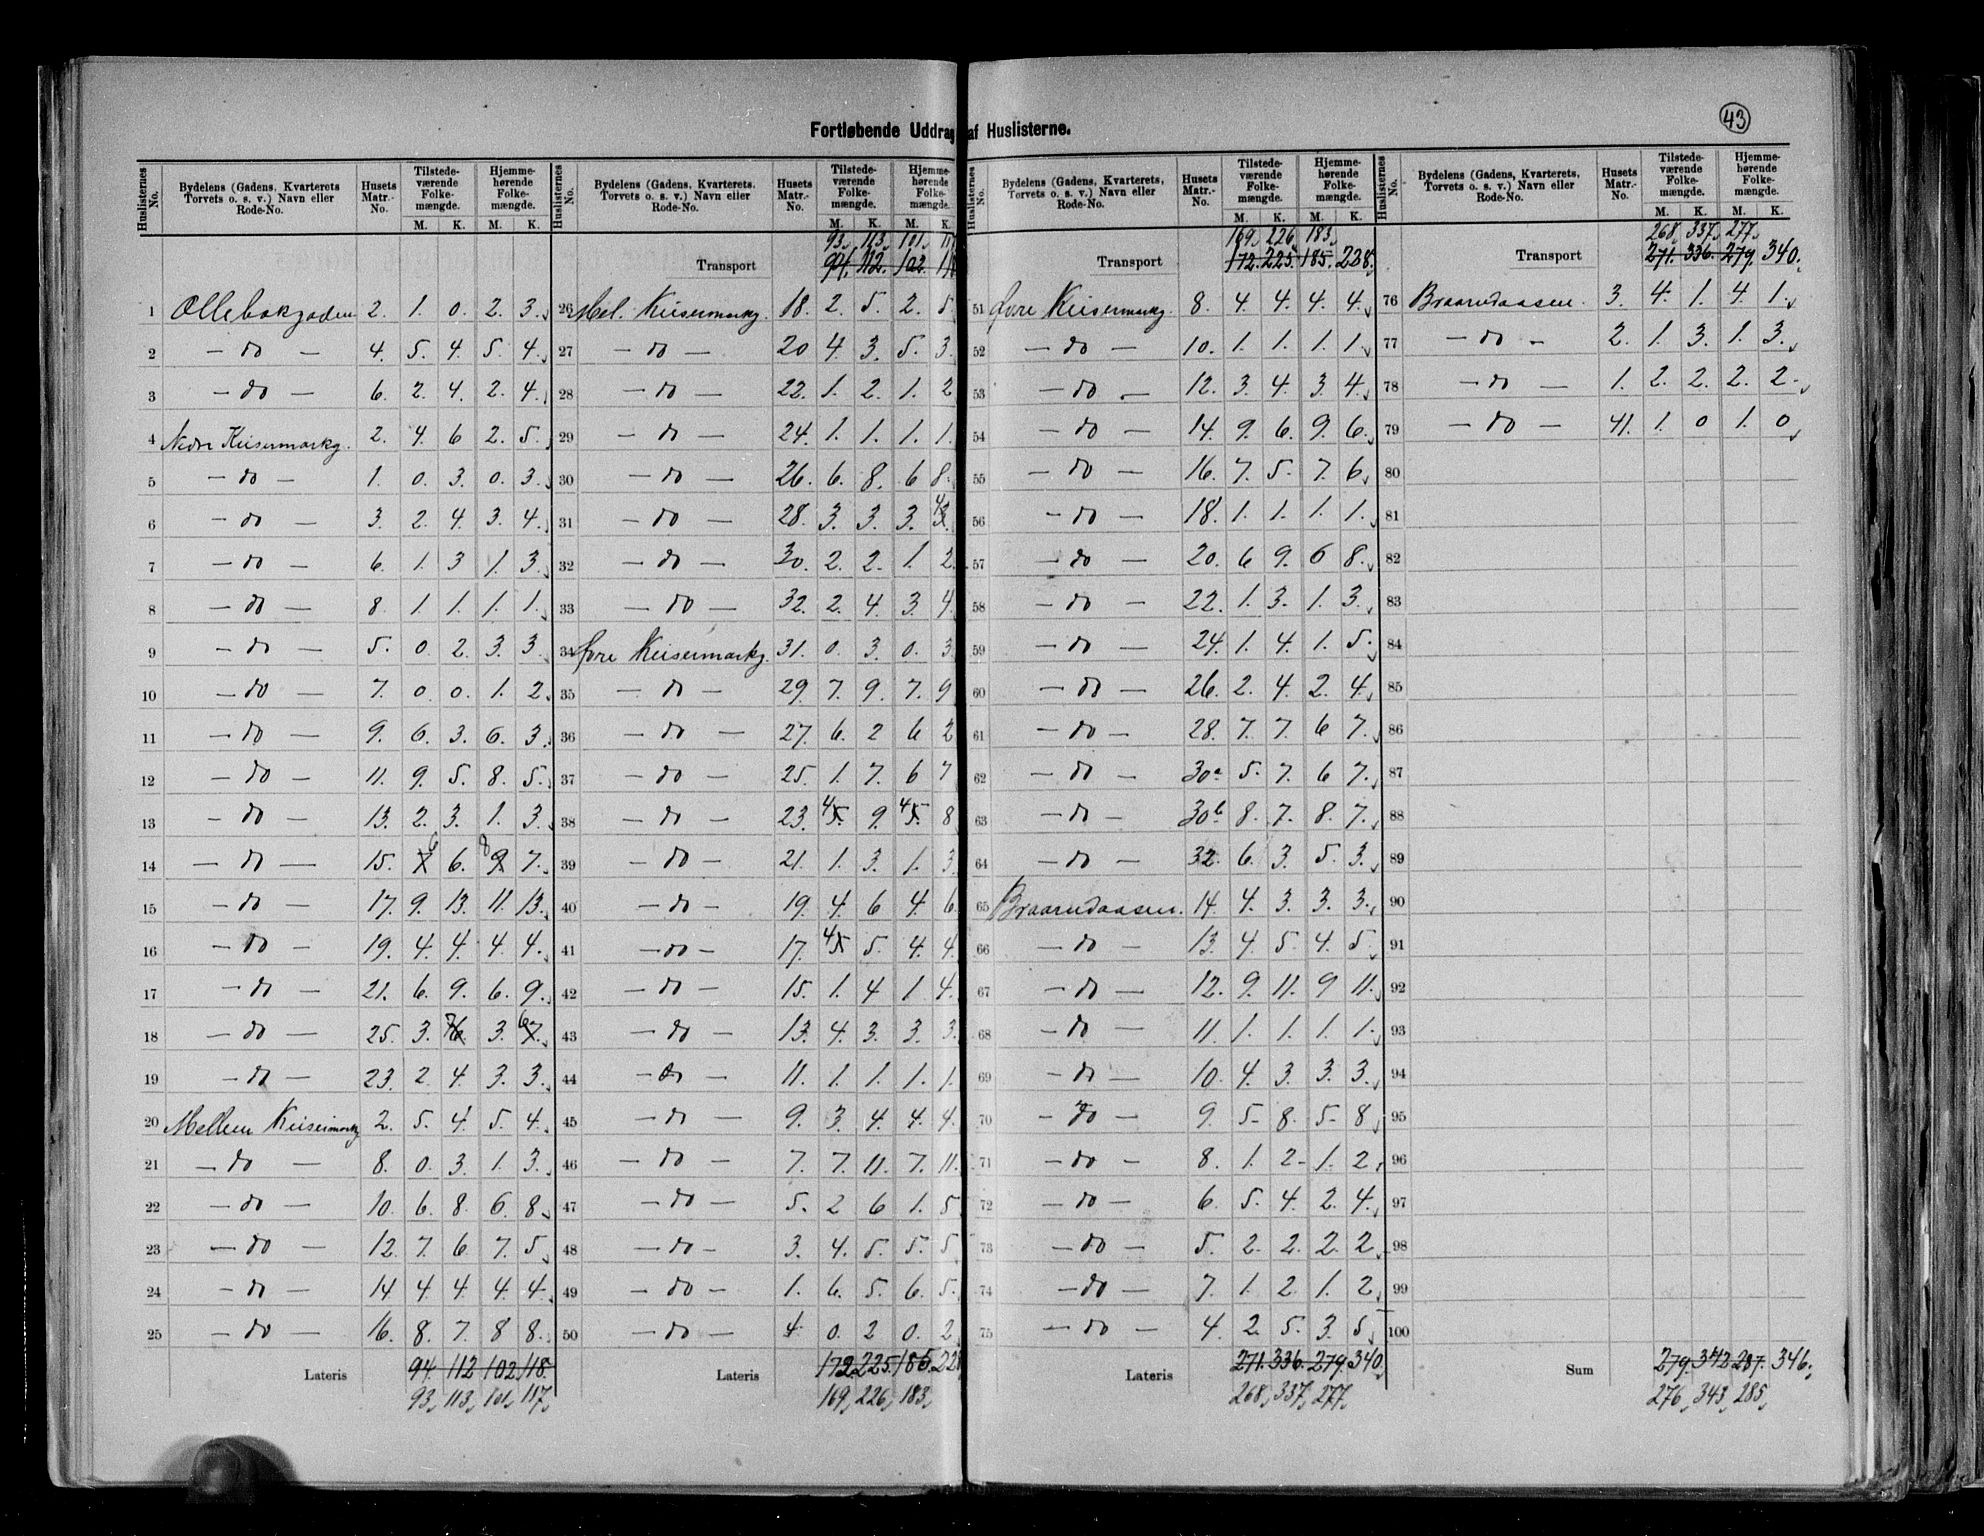 43
Fortløbende Uddrag af Huslisterne.
Huslisternes No. Bydelens (Gadens, Kvarterets Torvets o. s. v.) Navn eller Rode-No. Husets Matr.-No. Tilstedeværende Folkemængde. M. K. Hjemmehørende Folkemængde. M. K.
1 Ollebakgaden 2. 1. 0. 2. 3.
2 — do — 4. 5. 4. 5. 4.
3 — do — 6. 2. 4. 2. 4.
4 Nedre Keisermarkg. 2. 4. 6 2. 5.
5 — do — 1. 0. 3. 0. 3.
6 — do — 3. 2. 4. 3. 4.
7 — do — 6. 1. 3 1. 3.
8 — do — 8. 1. 1. 1. 1.
9 — do — 5. 0. 2. 3. 3.
10 — do — 7. 0. 0. 1. 2.
11 — do — 9. 6. 3. 6. 3.
12 — do — 11. 9. 5. 8. 5.
13 — do — 13. 2. 3. 1. 3.
14 — do — 15. 6 6. 8 9 7.
15 — do — 17. 9. 13. 11. 13.
16 — do — 19. 4. 4. 4. 4.
17 — do — 21. 6. 9. 6. 9.
18 — do — 25. 3. 7 6. 3. 6 7.
19 — do — 23. 2. 4. 3. 3.
20 Mellem Keisermarkg 2. 5. 4. 5. 4.
21 — do — 8. 0. 3. 1. 3.
22 — do — 10. 6. 8. 6. 8.
23 — do — 12. 7. 6. 7. 5.
24 — do — 14 4. 4. 4. 4.
25 — do — 16. 8. 7. 8 8.
Lateris 94. 112 102. 118.
93. 113. 101. 117.
Huslisternes No. Bydelens (Gadens, Kvarterets, Torvets o. s. v.) Navn eller Rode-No. Husets Matr.-No. Tilstedeværende Folkemængde. M. K. Hjemmehørende Folkemængde. M. K.
93. 113. 101.
Transport 94. 112. 102.
26 Mel. Keisermarkg. 18. 2. 5. 2. 5.
27 — do — 20 4. 3. 5. 3.
28 — do — 22. 1. 2. 1. 2
29 — do — 24. 1. 1. 1. 1.
30 — do — 26. 6. 8. 6 8.
31 — do — 28. 3. 3. 3. 4 3.
32 — do — 30. 2. 2. 1. 2.
33 — do — 32. 2. 4. 3. 4.
34 Øvre Keisermarkg. 31. 0. 3. 0. 3
35 — do — 29. 7. 9. 7. 9
36 — do — 27. 6. 2 6 2
37 — do — 25. 1. 7. 6 7
38 — do — 23. 4 5. 9. 4 5. 8
39 — do — 21. 1. 3. 1. 3
40 — do — 19. 4. 6 4. 6.
41 — do — 17. 4 5 5. 4. 4.
42 — do — 15. 1. 4 1 4.
43 — do — 13. 4. 3. 3. 3.
44 — do — 11. 1. 1. 1. 1.
45 — do — 9. 3. 4. 4. 4.
46 — do — 7. 7. 11. 7. 11.
47 — do — 5. 2 6 1. 5
48 — do — 3. 4. 5. 5. 5
49 — do — 1. 6. 5. 6. 5.
50 — do — 4 0. 2 0. 2
Lateris 172. 225. 185.
169. 226. 183.
Huslisternes No. Bydelens (Gadens, Kvarterets, Torvets o. s. v.) Navn eller Rode-No. Husets Matr.-No. Tilstedeværende Folkemængde. M. K. Hjemmehørende Folkemængde. M. K.
169. 226. 183.
Transport 172. 225. 185. 228.
51 Øvre Keisermarkg. 8. 4. 4. 4. 4.
52 — do — 10. 1. 1. 1. 1.
53 — do — 12. 3. 4. 3. 4.
54 — do — 14. 9. 6. 9. 6.
55 — do — 16. 7. 5. 7. 6.
56 — do — 18. 1. 1. 1. 1.
57 — do — 20. 6 9. 6 8.
58 — do — 22. 1. 3. 1. 3.
59 — do — 24. 1. 4. 1. 5.
60 — do — 26. 2. 4. 2. 4.
61 — do — 28. 7. 7. 6 7.
62 — do — 30a 5. 7. 6 7.
63 — do — 30b 8. 7. 8. 7.
64 — do — 32. 6. 3. 5. 3.
65 Braarudaasen. 14. 4. 3. 3. 3.
66 — do — 13. 4. 5. 4. 5.
67 — do — 12. 9. 11. 9 11.
68 — do — 11. 1. 1. 1. 1.
69 — do — 10. 4. 3. 3. 3.
70 — do 9. 5 8. 5 8
71 — do — 8. 1. 2 1. 2.
72 — do — 6. 5. 4. 2. 4.
73 — do — 5. 2. 2. 2. 2
74 — do — 7. 1. 2. 1. 2
75 — do — 4. 2. 5. 3. 5
Lateris 271. 336. 279. 340.
268. 337. 277.
Huslisternes No. Bydelens (Gadens, Kvarterets, Torvets o. s. v.) Navn eller Rode-No. Husets Matr.-No. Tilstedeværende Folkemængde. M. K. Hjemmehørende Folkemængde. M. K.
268. 337. 277.
Transport 271. 336. 279. 340.
76 Braarudaasen. 3. 4. 1. 4. 1.
77 — do — 2. 1. 3. 1. 3.
78 — do — 1. 2. 2. 2. 2.
79 — do — 41. 1. 0 1. 0
80
81
82
83
84
85
86
87
88
89
90
91
92
93
94
95
96
97
98
99
100
Sum 279. 342 287. 346.
276. 343. 285.